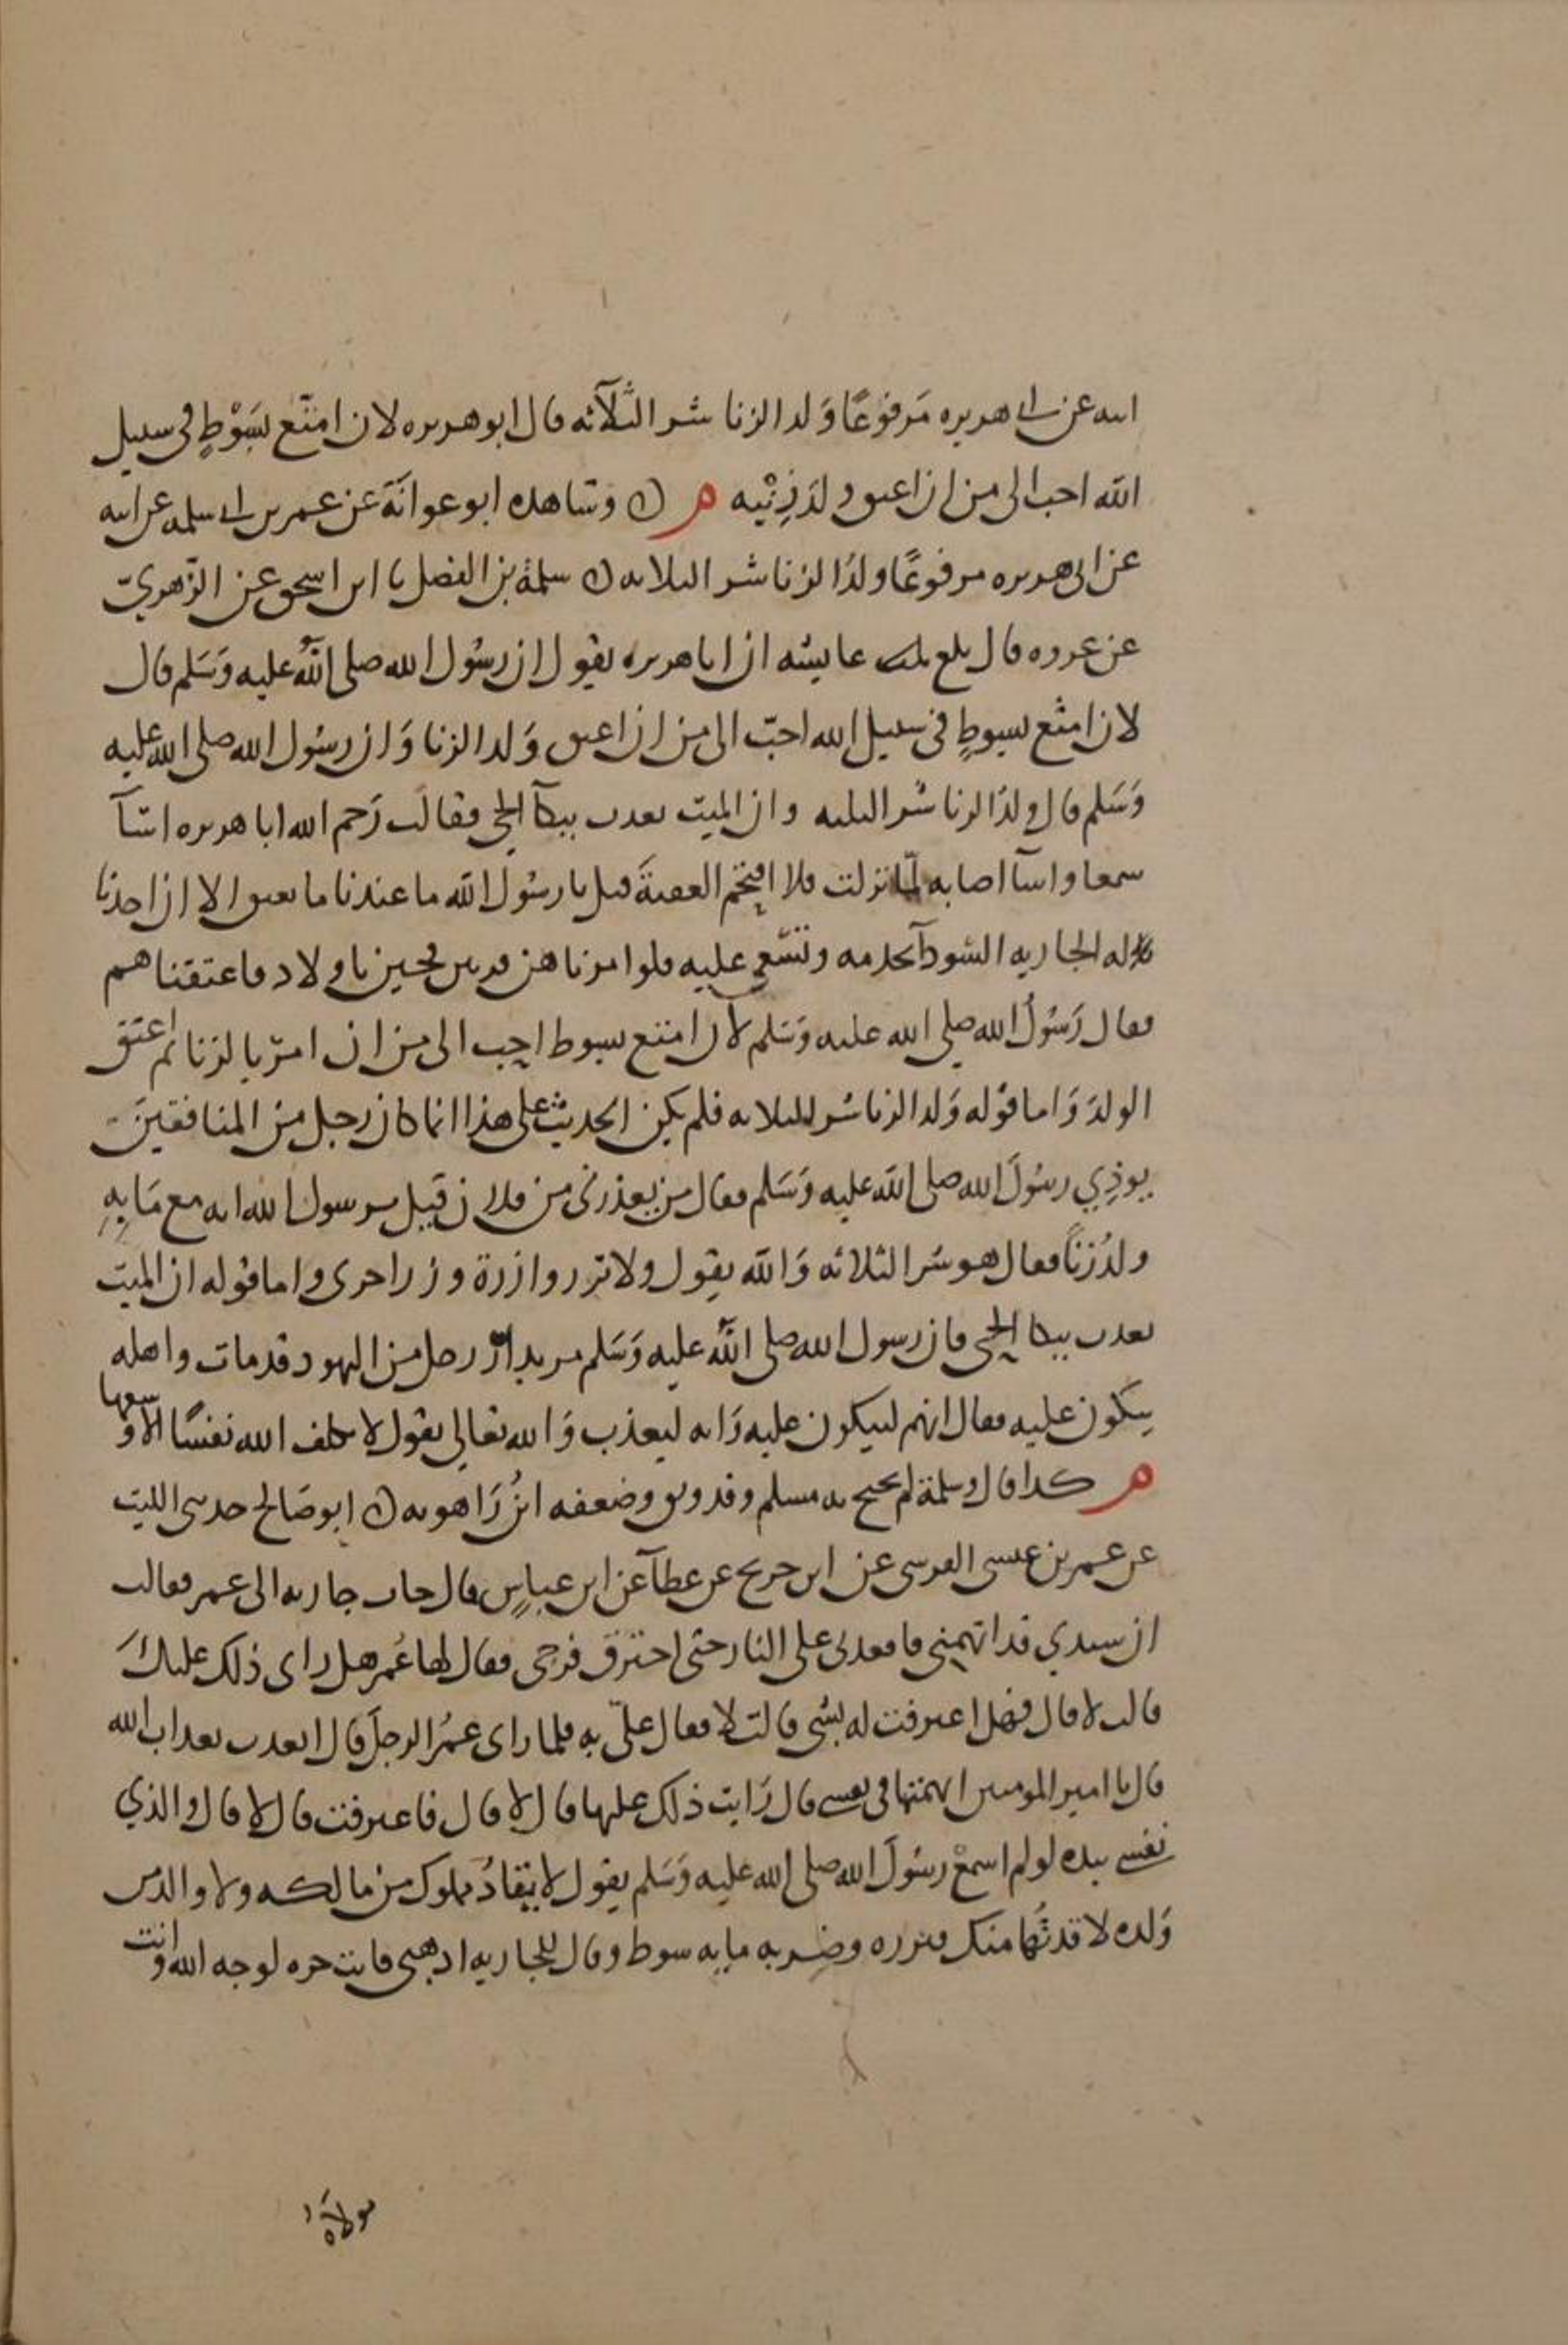 ابيه عن ابي هريره مَرفوعًا وَلد الزنا شر الثلآثه قال ابو هريره لان امتّع بسَوْطٍ في سبيل
الله احب الى من ان اعتق ولدَ زِنْيه م ك وشاهده ابو عوانَة عن عمر بن ابي سلمه عن ابيه
عن ابى هريره مرفوعًا ولدُ الزنا شر الثلاثه ك سلمة بن الفضل نا ابن اسحق عن الزهريّ
عن عروه قال بلغ عايشه ان ابا هريره يقول ان رسُول الله صلى اللهُ عليه وَسَلم قال
لان امتع بسوطٍ فى سبيل الله احبّ الى من ان اعتق وَلد الزنا وَان رسُول الله صلى الله عليه
وَسَلم قال ولدُ الزنا شر الثلثه وان الميت يعذب ببكآ الحي فقالَت رَحم الله ابا هريره اسآ
سمعا واسآ اصابه لمّا نزلت فلا اقتحم العقبةَ قيل يا رسُولَ الله ما عندنا ما نعتق الا ان احدنا
له الجاريه السَّودآ تخدمه وتسْعى عليه فلوا مرناهن فزنين فجين باولاد فاعتقناهم
فقال رَسُولُ الله صلى الله عليه وَسَلم لأن امتع بسوط احب الى من ان امر بالزنا ثم اعتق
الولدَ وَاما قوله وَلد الزنا شر الثلاثه فلم يكن الحديث على هذا انما كان رجل من المنافقينَ
يوذِي رسُولَ الله صلى الله عليه وَسَلم فقال من يعذرنى من فلان قيل يرسول الله انه مع مَا بِهِ
ولدُ زنًا فقال هو شر الثلاثه وَالله يقول ولا تزر وازرة وزر اخرى واما قوله ان الميت
يعذب ببكا الحي فان رسول الله صلى اللهُ عليه وَسَلم مر بدار رجل من اليهود قد مات واهله
يبكون عليه فقال انهم ليبكون عليه وَانه ليعذب وَالله تعالى يقول لا يكلف الله نفسًا الا وسعها
م كذا قال وسلمة لم يحتج به مسلم وقد وثق وضعفه ابنُ رَاهويه ك ابو صَالح حدثنى الليث
عن عمر بن عيسى القرشى عن ابن جريج عن عطآ عن ابن عباسٍ قال جات جاريه الى عمر فقالت
ان سيدي قد اتهمني فاقعدنى على النار حتى احترق فرجى فقال لها عُمر هل راى ذلك عليكَ
قالت لا قال فهل اعترفت له بشي قالت لا فقال علىّ به فلما راى عمُر الرجلَ قال اتعذب بعذاب الله
قال يا امير المومنين اتهمتها فى نفسي قال رَايت ذلك عليها قال لا قال فاعترفت قال لا قال والذي
نفسي بيده لو لم اسمعْ رسُولَ الله صلى الله عليه وَسَلم يقول لا يقادُ مملوك من مالكه ولا والد من
وَلده لاقدتُّها منك فبرزه وضربه مايه سوط وقال للجاريه اذهبى فانت حره لوجه الله وانت
مولاة